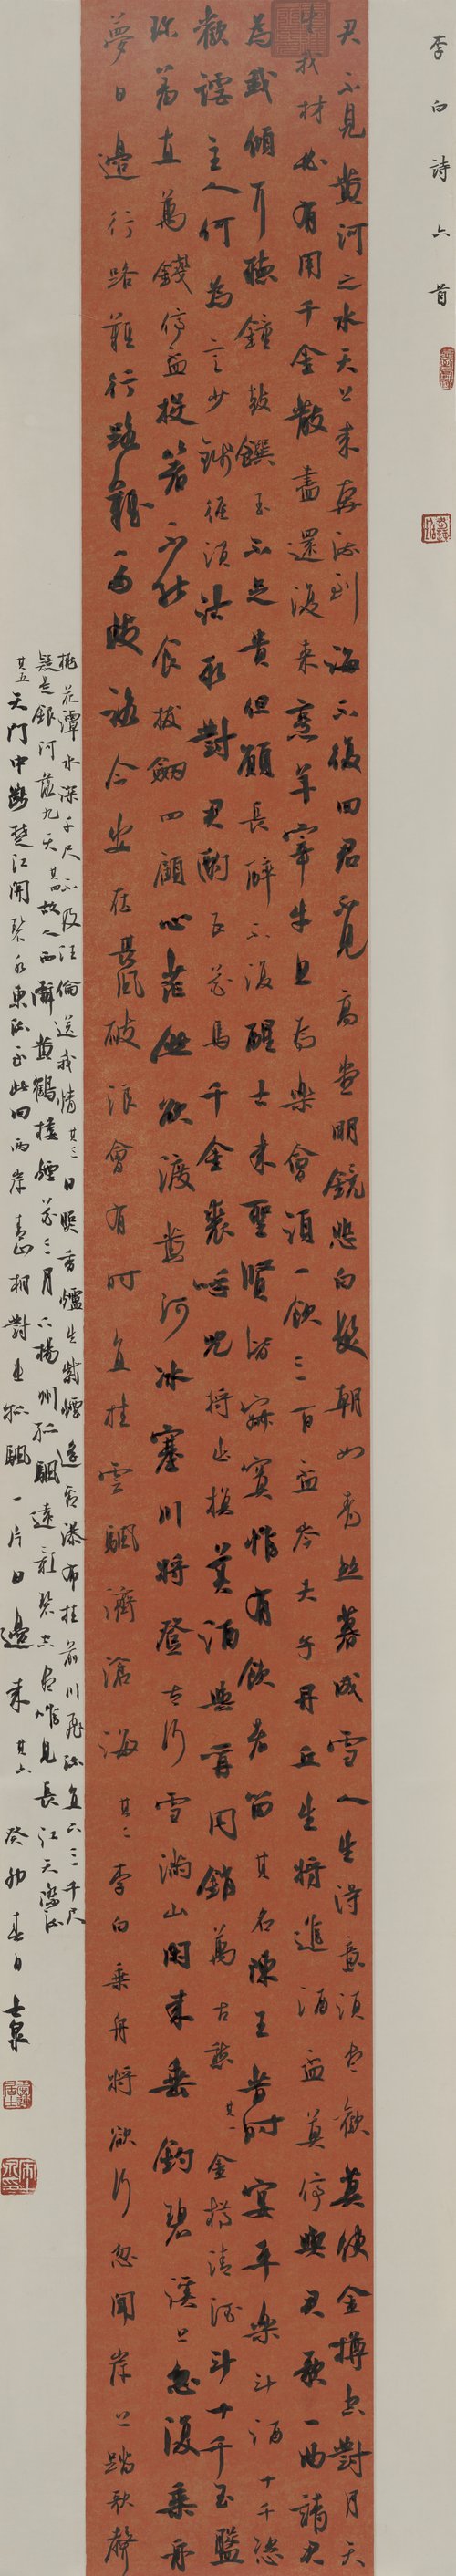 李白詩六首
君不見黄河之水天上来奔流到海不復回君不見高堂明鏡悲白髮朝如青丝暮成雪人生得意須尽歡莫使金樽空對月天
生我材必有用千金散盡還復来烹羊宰牛且為樂會須一飲三百盃岑夫子丹丘生将進酒盃莫停與君歌一曲請君
為我傾耳聴鐘鼓饌玉不足貴但願長醉不復醒古来聖賢皆寂寞惟有飲者留其名陳王昔時宴平樂斗酒十千恣
歡謔主人何為言少銭徑須沽取對君酌五花馬千金裘呼児将出换美酒與爾同銷萬古愁其一金樽清酒斗十千玉盤
珎羞直萬錢停盃投箸不能食拔劒四顧心茫然欲渡黄河冰塞川将登太行雪滿山閑来垂釣碧溪上忽復乗舟
夢日邊行路難行路難多歧路今安在長風破浪會有時直挂雲颿濟滄海其二李白乗舟将欲行忽聞岸上踏歌聲
桃花潭水深千尺不及汪倫送我情其三日照香爐生紫煙遥看瀑布挂前川飛流直下三千尺
疑是銀河落九天其四故人西辭黄鶴樓煙花三月下揚州孤颿遠影碧空尽唯見長江天際流
其五天门中斷楚江開碧水東流至此回兩岸青山相對出孤颿一片日邊来其六癸卯春日士泉